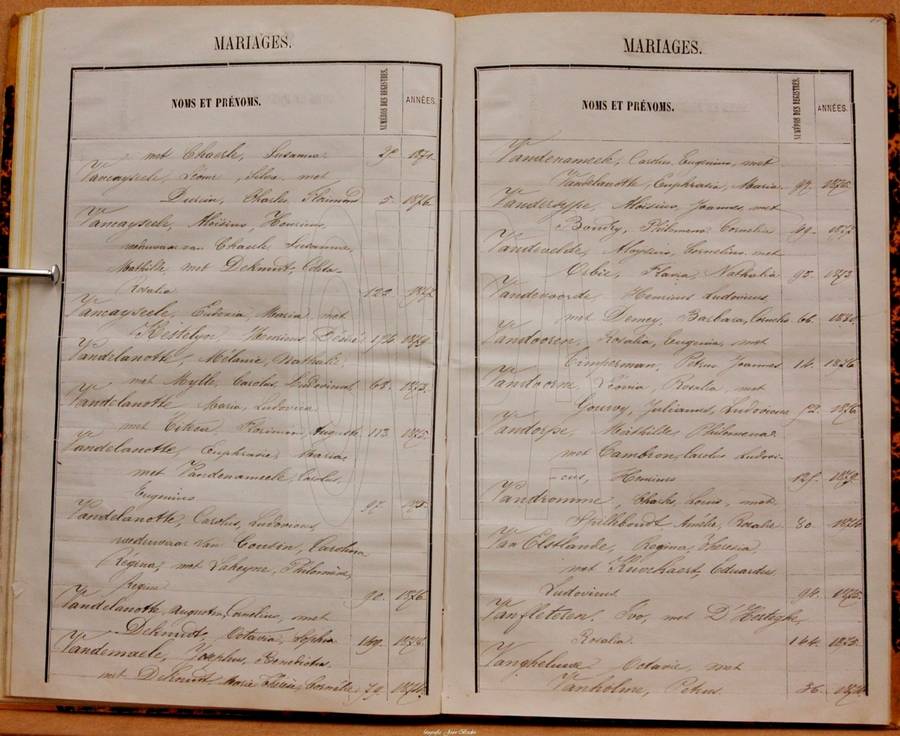 MARIAGES.
NOMS ET PRÉNOMS.
NUMÉROS DES REGISTRES.
ANNÉES.
met Chaerle, Susanna
Vamayseele, Leonie, met
Durein, Charles Florimond 5. 1876.
Vamayseele, Aloisius, Henricus,
weduwaar van Chaerle Susanna,
Mathilde, met Deknudt, Coleta
Rosalia 122 1872
Vamayseele, Eutonia, Maria met
Kestelyn, Henricus Désiré 176 1879.
Vandelanotte, Mélanie, Nathalie,
met Mylle, Carolus, Ludovicus 68. 1873.
Vandelanotte Maria, Ludovica
met Florimon, August 113 1875.
Vandelanotte, Euphrasie, Maria
met Vandenameele, Carolus,
Eugenius 97. 1875.
Vandelanotte, Carolus, Ludovicus,
weduwaar van Cousin, Carolina
Régina, met Laheyne, Philomène,
Régine 90. 1876.
Vandelanotte, Augustin, Cornelius, met
Deknudt, Octavia, Sophia 169. 1876.
Vandemaele, Josephus, Benedictus,
met Deknudt, Maria Thérèse, Cornélie 79. 1874.
MARIAGES.
NOMS ET PRÉNOMS.
NUMÉROS DES REGISTRES.
ANNÉES.
Vandenameele, Carolus, Eugenius, met
Vandelanotte, Euphrasia, Maria 97. 1875.
Vandersype, Aloisius, Joannes met
Boudry, Philomena Cornelia 49. 1872
Vandevelde, Aloysius, Cornelius, met
Orbie, Flavia, Nathalia 95. 1873
Vandevoorde Henricus Ludovicus,
met Demey, Barbara, Cornelia 66. 1880.
Vandooren, Rosalia, Eugenia, met
Timperman, Petrus Joannes 14. 1876
Vandoorne, Leonia, Rosalia met
Gouwy, Julianus, Ludovicus 72. 1876.
Vandorpe, Mathilde Philomena
met Cambron, Carolus Ludovi-
-cus, Henricus 125. 1879.
Vandromme, Charles Louis, met
Spillebeudt Amélie, Rosalie 30. 1874
Van Elstlande, Regina, Theresia,
met Ruvchaert, Eduardus
Ludovicus 94. 1875.
Vanfleteren, Ivo, met D'Hertoghe,
Rosalia 144. 1873.
Vangheluwe Octavie, met
Vanholme, Petrus 36. 1874